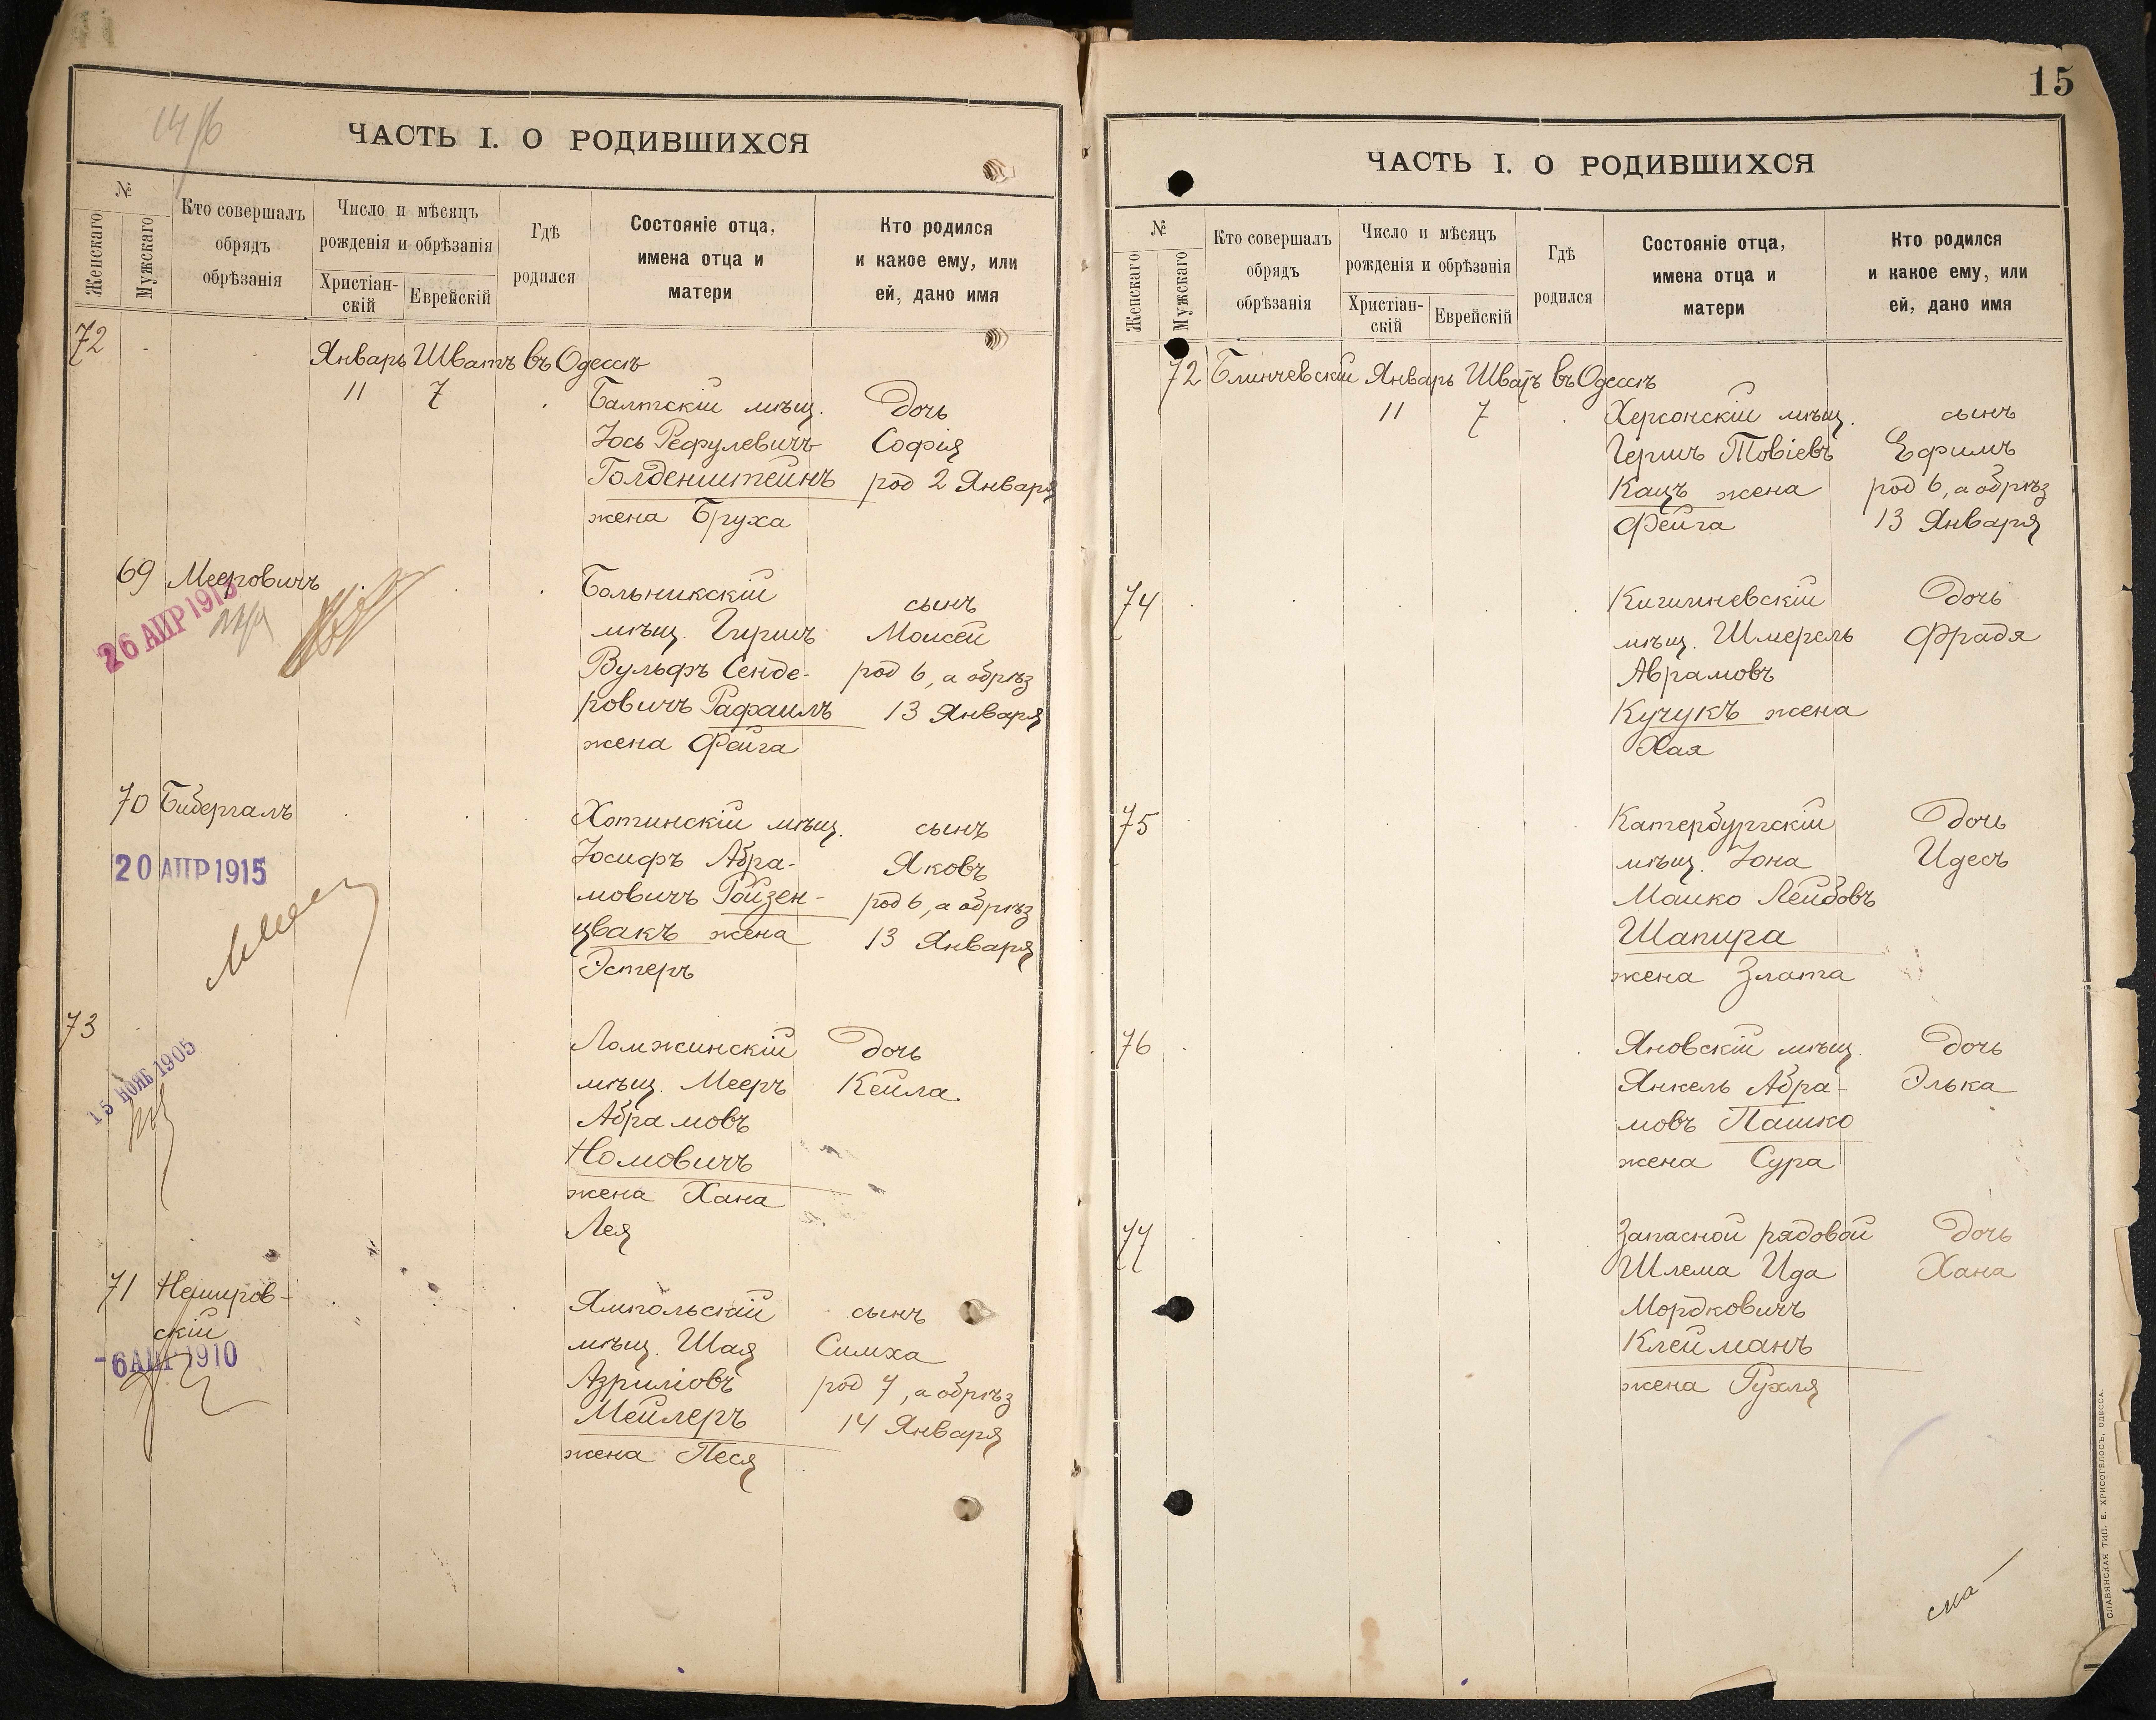 14/б
ЧАСТЬ I. О РОДИВШИХСЯ
№
Женскаго
Мужскаго
Кто совершалъ
обрядъ
обрѣзанія
Число и мѣсяцъ
рожденія и обрѣзанія
Христіан-
скій
Еврейскій
Гдѣ
родился
Состояніе отца,
имена отца и
матери
Кто родился
и какое ему, или
ей, дано имя
72
Январь Шватъ въ Одессѣ
11 7 Балтскій мѣщ. Дочь
Іось Рефулевичъ Софія
Голденштейнъ род 2 Января
жена Бруха
69 Мееровичъ Больникскій сынъ
26 АПР 1913
мѣщ. Гиршъ Моисей
Вульфъ Сенде- род 6, а обрѣз
ровичъ Рафаилъ 13 Января
жена Фейга
70 Бибергалъ Хотинскій мѣщ. сынъ
20 АПР 1915
Іосифъ Абра- Яковъ
мовичъ Ройзен- род 6, а обрѣз
цвакъ жена 13 Января
Эстеръ
73 Ломжинскій Дочь
15 НОЯБ 1905
мѣщ. Мееръ Кейла.
Абрамовъ
Номовичъ
жена Хана
Лея
71 Немиров- Ямпольскій сынъ
скій мѣщ. Шая Симха
-6 АПР 1910
Азриловъ род 7, а обрѣз
Мейлеръ 14 Января
жена Песя
15
ЧАСТЬ I. О РОДИВШИХСЯ
№
Женскаго
Мужскаго
Кто совершалъ
обрядъ
обрѣзанія
Число и мѣсяцъ
рожденія и обрѣзанія
Христіан-
скій
Еврейскій
Гдѣ
родился
Состояніе отца,
имена отца и
матери
Кто родился
и какое ему, или
ей, дано имя
72 Блинчевскій Январь Шватъ въ Одессѣ
11 7 Херсонскій мѣщ. сынъ
Гершъ Товіевъ Ефимъ
Кацъ жена род 6, а обрѣз
Фейга 13 Января
74 Кишиневскій Дочь
мѣщ. Шмерель Фрадя
Аврамовъ
Кучукъ жена
Хая
75 Катербургскій Дочь
мѣщ. Іона Идесъ
Мошко Лейбовъ
Шапира
жена Злата
76 Яновскій мѣщ. Дочь
Янкель Абра- Элька
мовъ Пашко
жена Сура
77 Запасной рядовой Дочь
Шлема Ида Хана
Мордковичъ
Клейманъ
жена Рухля
СЛАВЯНСКАЯ ТИП. Е. ХРИСОГЕЛОСЪ, ОДЕССА.